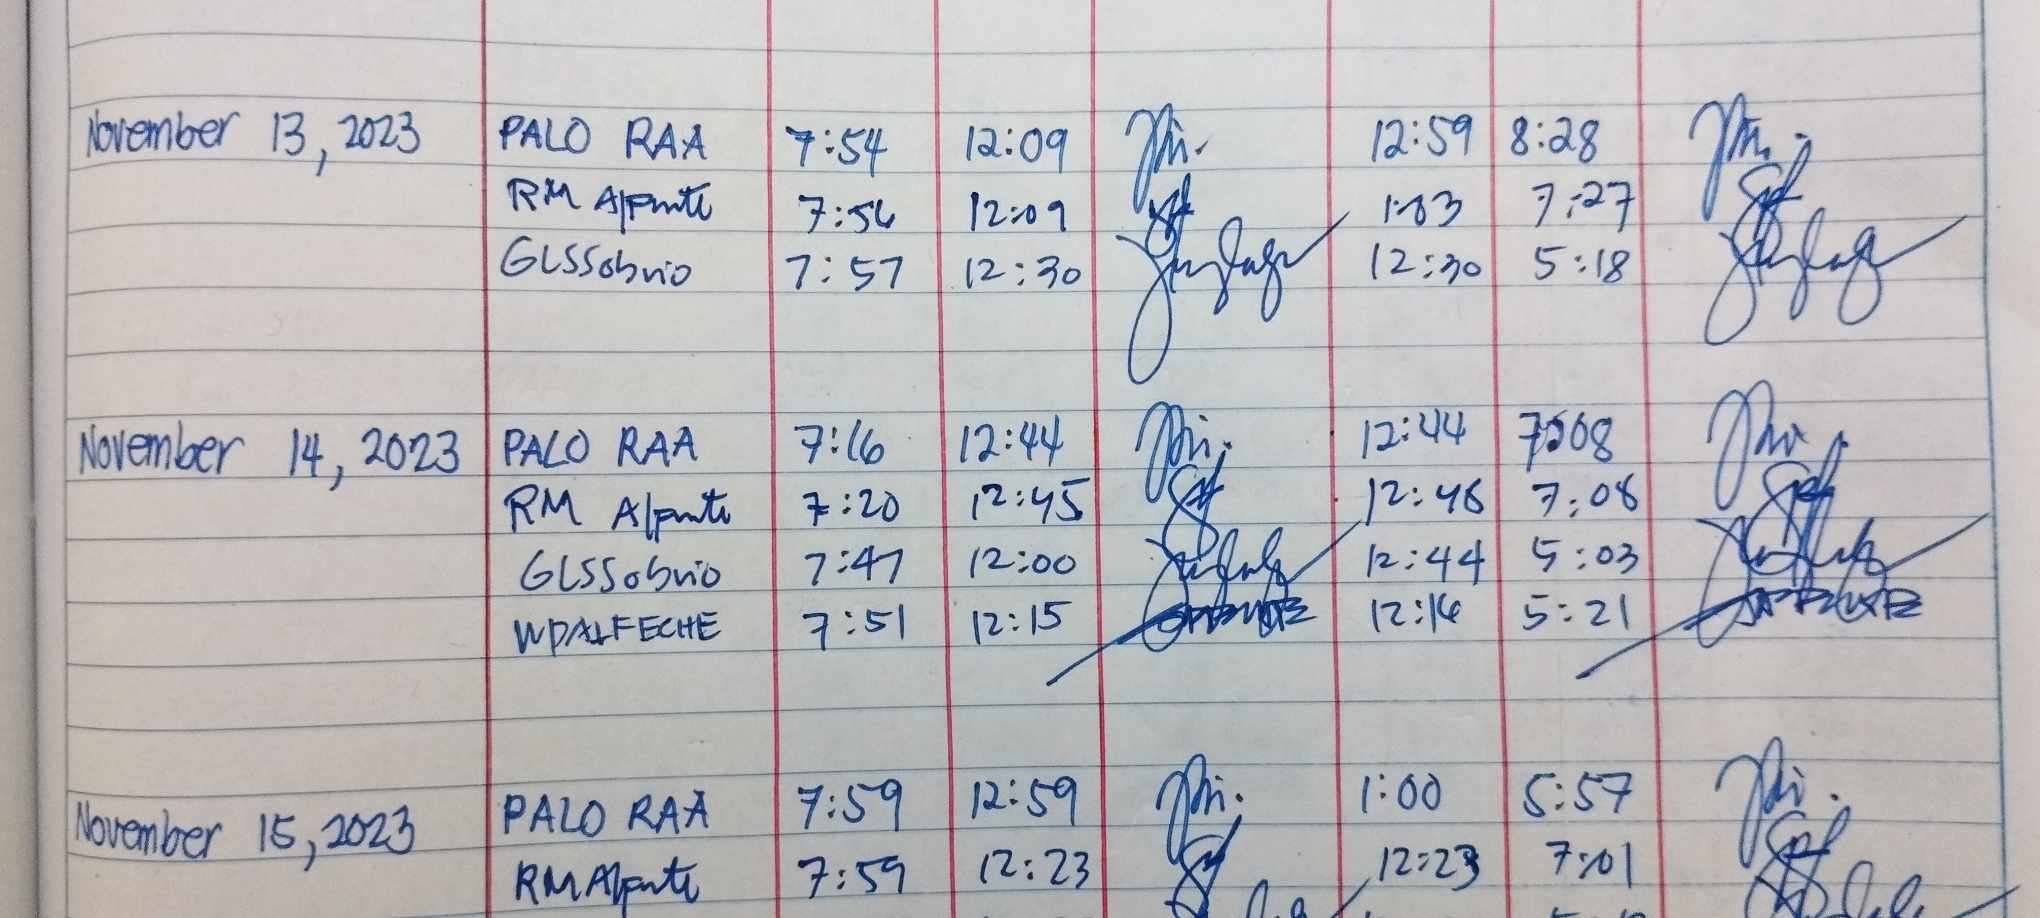 November 13, 2023 PALO RAA 7:54 12:09 12:59 8:28
RM Alpunte 7:56 12:09 1:03 7:27
GLSSobrio 7:57 12:30 12:30 5:18
November 14, 2023 PALO RAA 7:16 12:44 12:44 7:08
RM Alpunte 7:20 12:45 12:46 7:08
GLSSobrio 7:47 12:00 12:44 5:03
WDALFECHE 7:51 12:15 12:16 5:21
November 15, 2023 PALO RAA 7:59 12:59 1:00 5:57
RM Alpunte 7:59 12:23 12:23 7:01